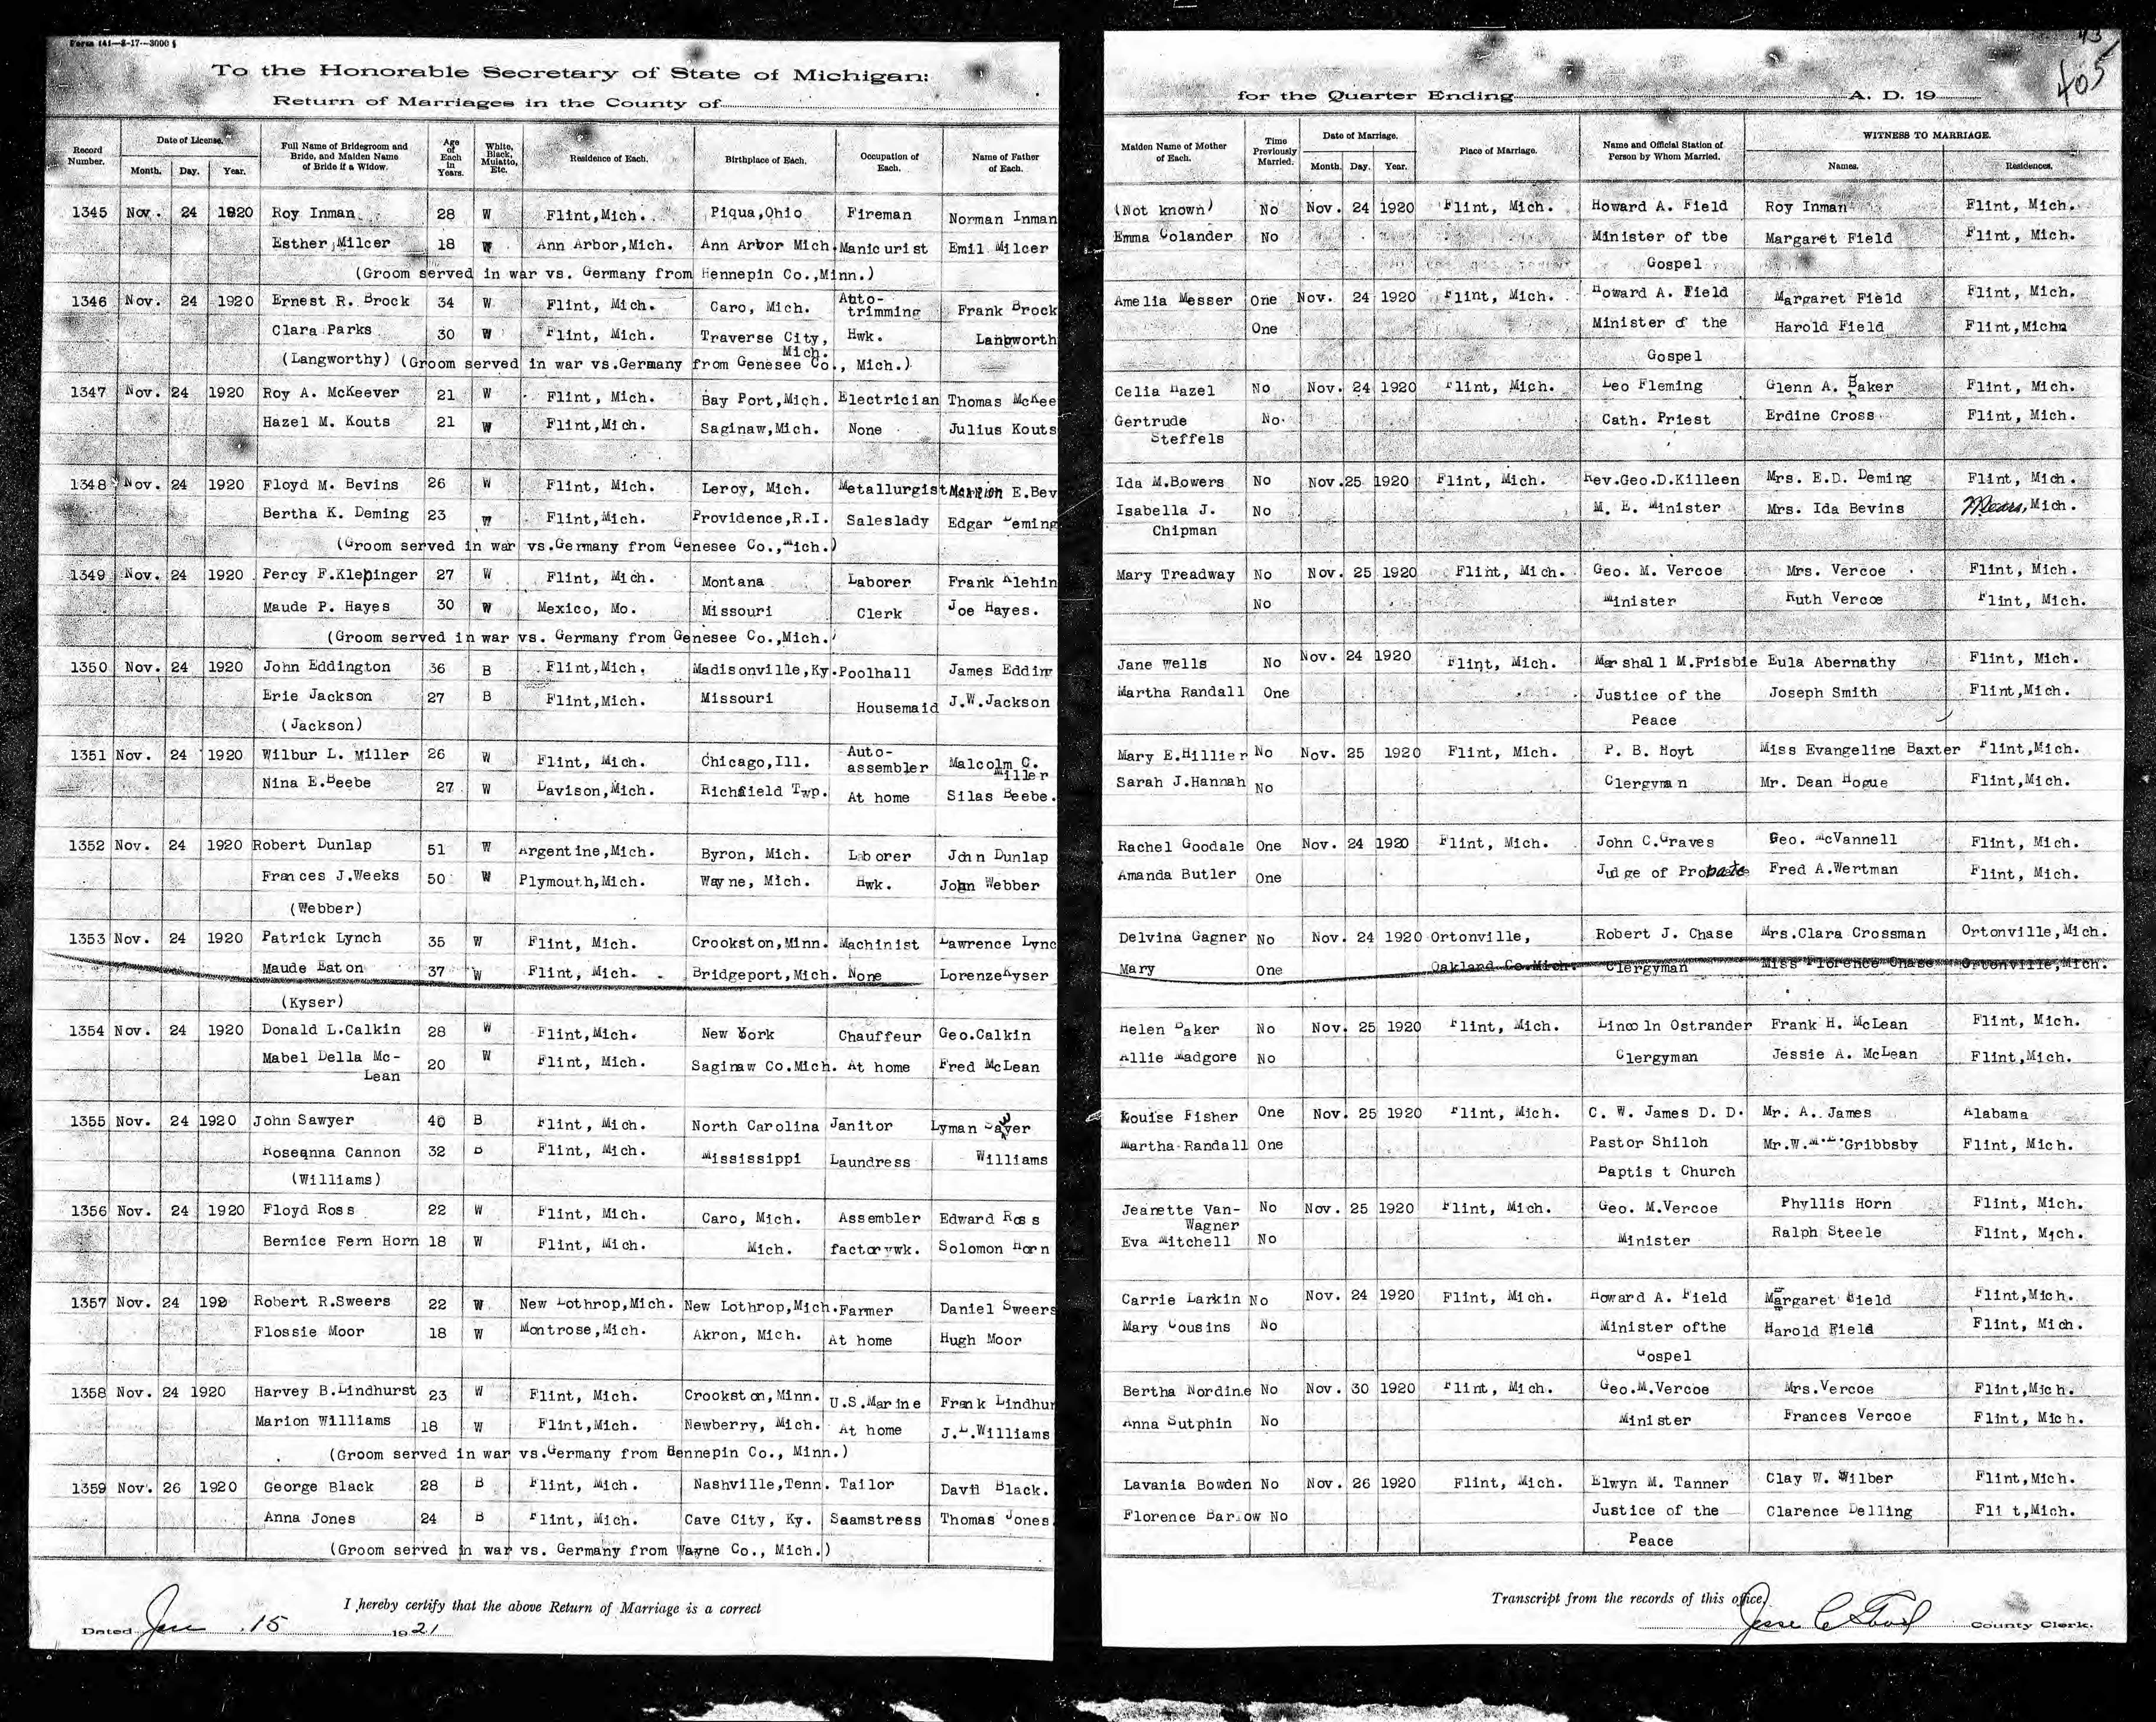 Form 141—8-17—3000 §
To the Honorable Secretary of State of Michigan:
Return of Marriages in the County of
Record Number.
Date of License.
Month. Day. Year.
Full Name of Bridegroom and Bride, and Maiden Name of Bride if a Widow.
Age of Each in Years.
White, Black, Mulatto, Etc.
Residence of Each.
Birthplace of Each.
Occupation of Each.
Name of Father of Each.
1345 Nov. 24 1920 Roy Inman 28 W Flint,Mich. Piqua,Ohio Fireman Norman Inman
Esther Milcer 18 W Ann Arbor,Mich. Ann Arbor Mich. Manicurist Emil Milcer
(Groom served in war vs. Germany from Hennepin Co.,Minn.)
1346 Nov. 24 1920 Ernest R. Brock 34 W Flint, Mich. Caro, Mich. Auto-trimming Frank Brock
Clara Parks 30 W Flint, Mich. Traverse City, Mich. Hwk. Langworth
(Langworthy) (Groom served in war vs.Germany from Genesee Co., Mich.)
1347 Nov. 24 1920 Roy A. McKeever 21 W Flint, Mich. Bay Port,Mich. Electrician Thomas McKee
Hazel M. Kouts 21 W Flint,Mich. Saginaw,Mich. None Julius Kouts
1348 Nov. 24 1920 Floyd M. Bevins 26 W Flint, Mich. Leroy, Mich. Metallurgist Marion E.Bev
Bertha K. Deming 23 W Flint,Mich. Providence,R.I. Saleslady Edgar Deming
(Groom served in war vs.Germany from Genesee Co.,Mich.)
1349 Nov. 24 1920 Percy F.Klepinger 27 W Flint, Mich. Montana Laborer Frank Klehin
Maude P. Hayes 30 W Mexico, Mo. Missouri Clerk Joe Hayes.
(Groom served in war vs. Germany from Genesee Co.,Mich.)
1350 Nov. 24 1920 John Eddington 36 B Flint,Mich. Madisonville,Ky. Poolhall James Eddin
Erie Jackson 27 B Flint,Mich. Missouri Housemaid J.W.Jackson
(Jackson)
1351 Nov. 24 1920 Wilbur L. Miller 26 W Flint, Mich. Chicago,Ill. Auto-assembler Malcolm C. Miller
Nina E.Beebe 27 W Davison,Mich. Richfield Twp. At home Silas Beebe.
1352 Nov. 24 1920 Robert Dunlap 51 W Argentine,Mich. Byron, Mich. Laborer John Dunlap
Frances J.Weeks 50 W Plymouth,Mich. Wayne, Mich. Hwk. John Webber
(Webber)
1353 Nov. 24 1920 Patrick Lynch 35 W Flint, Mich. Crookston,Minn. Machinist Lawrence Lync
Maude Eaton 37 W Flint, Mich. Bridgeport,Mich. None LorenzeKyser
(Kyser)
1354 Nov. 24 1920 Donald L.Calkin 28 W Flint,Mich. New York Chauffeur Geo.Calkin
Mabel Della Mc- 20 W Flint, Mich. Saginaw Co.Mich. At home Fred McLean
Lean
1355 Nov. 24 1920 John Sawyer 40 B Flint, Mich. North Carolina Janitor Lyman Sawyer
Roseanna Cannon 32 B Flint, Mich. Mississippi Laundress Williams
(Williams)
1356 Nov. 24 1920 Floyd Ross 22 W Flint, Mich. Caro, Mich. Assembler Edward Ross
Bernice Fern Horn 18 W Flint, Mich. Mich. factorywk. Solomon Horn
1357 Nov. 24 192 Robert R.Sweers 22 W New Lothrop,Mich. New Lothrop,Mich. Farmer Daniel Sweers
Flossie Moor 18 W Montrose,Mich. Akron, Mich. At home Hugh Moor
1358 Nov. 24 1920 Harvey B.Lindhurst 23 W Flint, Mich. Crookston,Minn. U.S.Marine Frank Lindhur
Marion Williams 18 W Flint,Mich. Newberry, Mich. At home J.L.Williams
(Groom served in war vs.Germany from Hennepin Co., Minn.)
1359 Nov. 26 1920 George Black 28 B Flint, Mich. Nashville,Tenn. Tailor David Black.
Anna Jones 24 B Flint, Mich. Cave City, Ky. Seamstress Thomas Jones
(Groom served in war vs. Germany from Wayne Co., Mich.)
I hereby certify that the above Return of Marriage is a correct
Dated Jan 15 1921
43
405
for the Quarter Ending A. D. 19
Maiden Name of Mother of Each.
Time Previously Married.
Date of Marriage.
Month. Day. Year.
Place of Marriage.
Name and Official Station of Person by Whom Married.
WITNESS TO MARRIAGE.
Names. Residences.
(Not known) No Nov. 24 1920 Flint, Mich. Howard A. Field Roy Inman Flint, Mich.
Emma Colander No Minister of tbe Margaret Field Flint, Mich.
Gospel
Amelia Messer One Nov. 24 1920 Flint, Mich. Howard A. Field Margaret Field Flint, Mich.
One Minister of the Harold Field Flint,Michn
Gospel
Celia Hazel No Nov. 24 1920 Flint, Mich. Leo Fleming Glenn A. Baker Flint, Mich.
Gertrude No. Cath. Priest Erdine Cross Flint, Mich.
Steffels
Ida M.Bowers No Nov.25 1920 Flint, Mich. Rev.Geo.D.Killeen Mrs. E.D. Deming Flint, Mich.
Isabella J. No M. E. Minister Mrs. Ida Bevins Mears, Mich.
Chipman
Mary Treadway No Nov. 25 1920 Flint, Mich. Geo. M. Vercoe Mrs. Vercoe Flint, Mich.
No Minister Ruth Vercoe Flint, Mich.
Jane Wells No Nov. 24 1920 Flint, Mich. Marshall M.Frisbie Eula Abernathy Flint, Mich.
Martha Randall One Justice of the Joseph Smith Flint,Mich.
Peace
Mary E.Hillier No Nov. 25 1920 Flint, Mich. P. B. Hoyt Miss Evangeline Baxter Flint,Mich.
Sarah J.Hannah No Clergyman Mr. Dean Hogue Flint,Mich.
Rachel Goodale One Nov. 24 1920 Flint, Mich. John C.Graves Geo. McVannell Flint, Mich.
Amanda Butler One Judge of Probate Fred A.Wertman Flint, Mich.
Delvina Gagner No Nov. 24 1920 Ortonville, Robert J. Chase Mrs.Clara Crossman Ortonville,Mich.
Mary One Oakland Co.Mich. Clergyman Miss Florence Chase Ortonville,Mich.
Helen Baker No Nov. 25 1920 Flint, Mich. Lincoln Ostrander Frank H. McLean Flint, Mich.
Allie Madgore No Clergyman Jessie A. McLean Flint,Mich.
Louise Fisher One Nov. 25 1920 Flint, Mich. C. W. James D. D. Mr. A. James Alabama
Martha Randall One Pastor Shiloh Mr.W.M.L.Gribbsby Flint, Mich.
Baptist Church
Jeanette Van- No Nov. 25 1920 Flint, Mich. Geo. M.Vercoe Phyllis Horn Flint, Mich.
Wagner
Eva Mitchell No Minister Ralph Steele Flint, Mich.
Carrie Larkin No Nov. 24 1920 Flint, Mich. Howard A. Field Margaret Field Flint,Mich.
Mary Cousins No Minister ofthe Harold Field Flint, Mich.
Gospel
Bertha Nordine No Nov. 30 1920 Flint, Mich. Geo.M.Vercoe Mrs.Vercoe Flint,Mich.
Anna Sutphin No Minister Frances Vercoe Flint, Mich.
Lavania Bowden No Nov. 26 1920 Flint, Mich. Elwyn M. Tanner Clay W. Wilber Flint,Mich.
Florence Barlow No Justice of the Clarence Delling Fli t,Mich.
Peace
Transcript from the records of this office.
County Clerk.